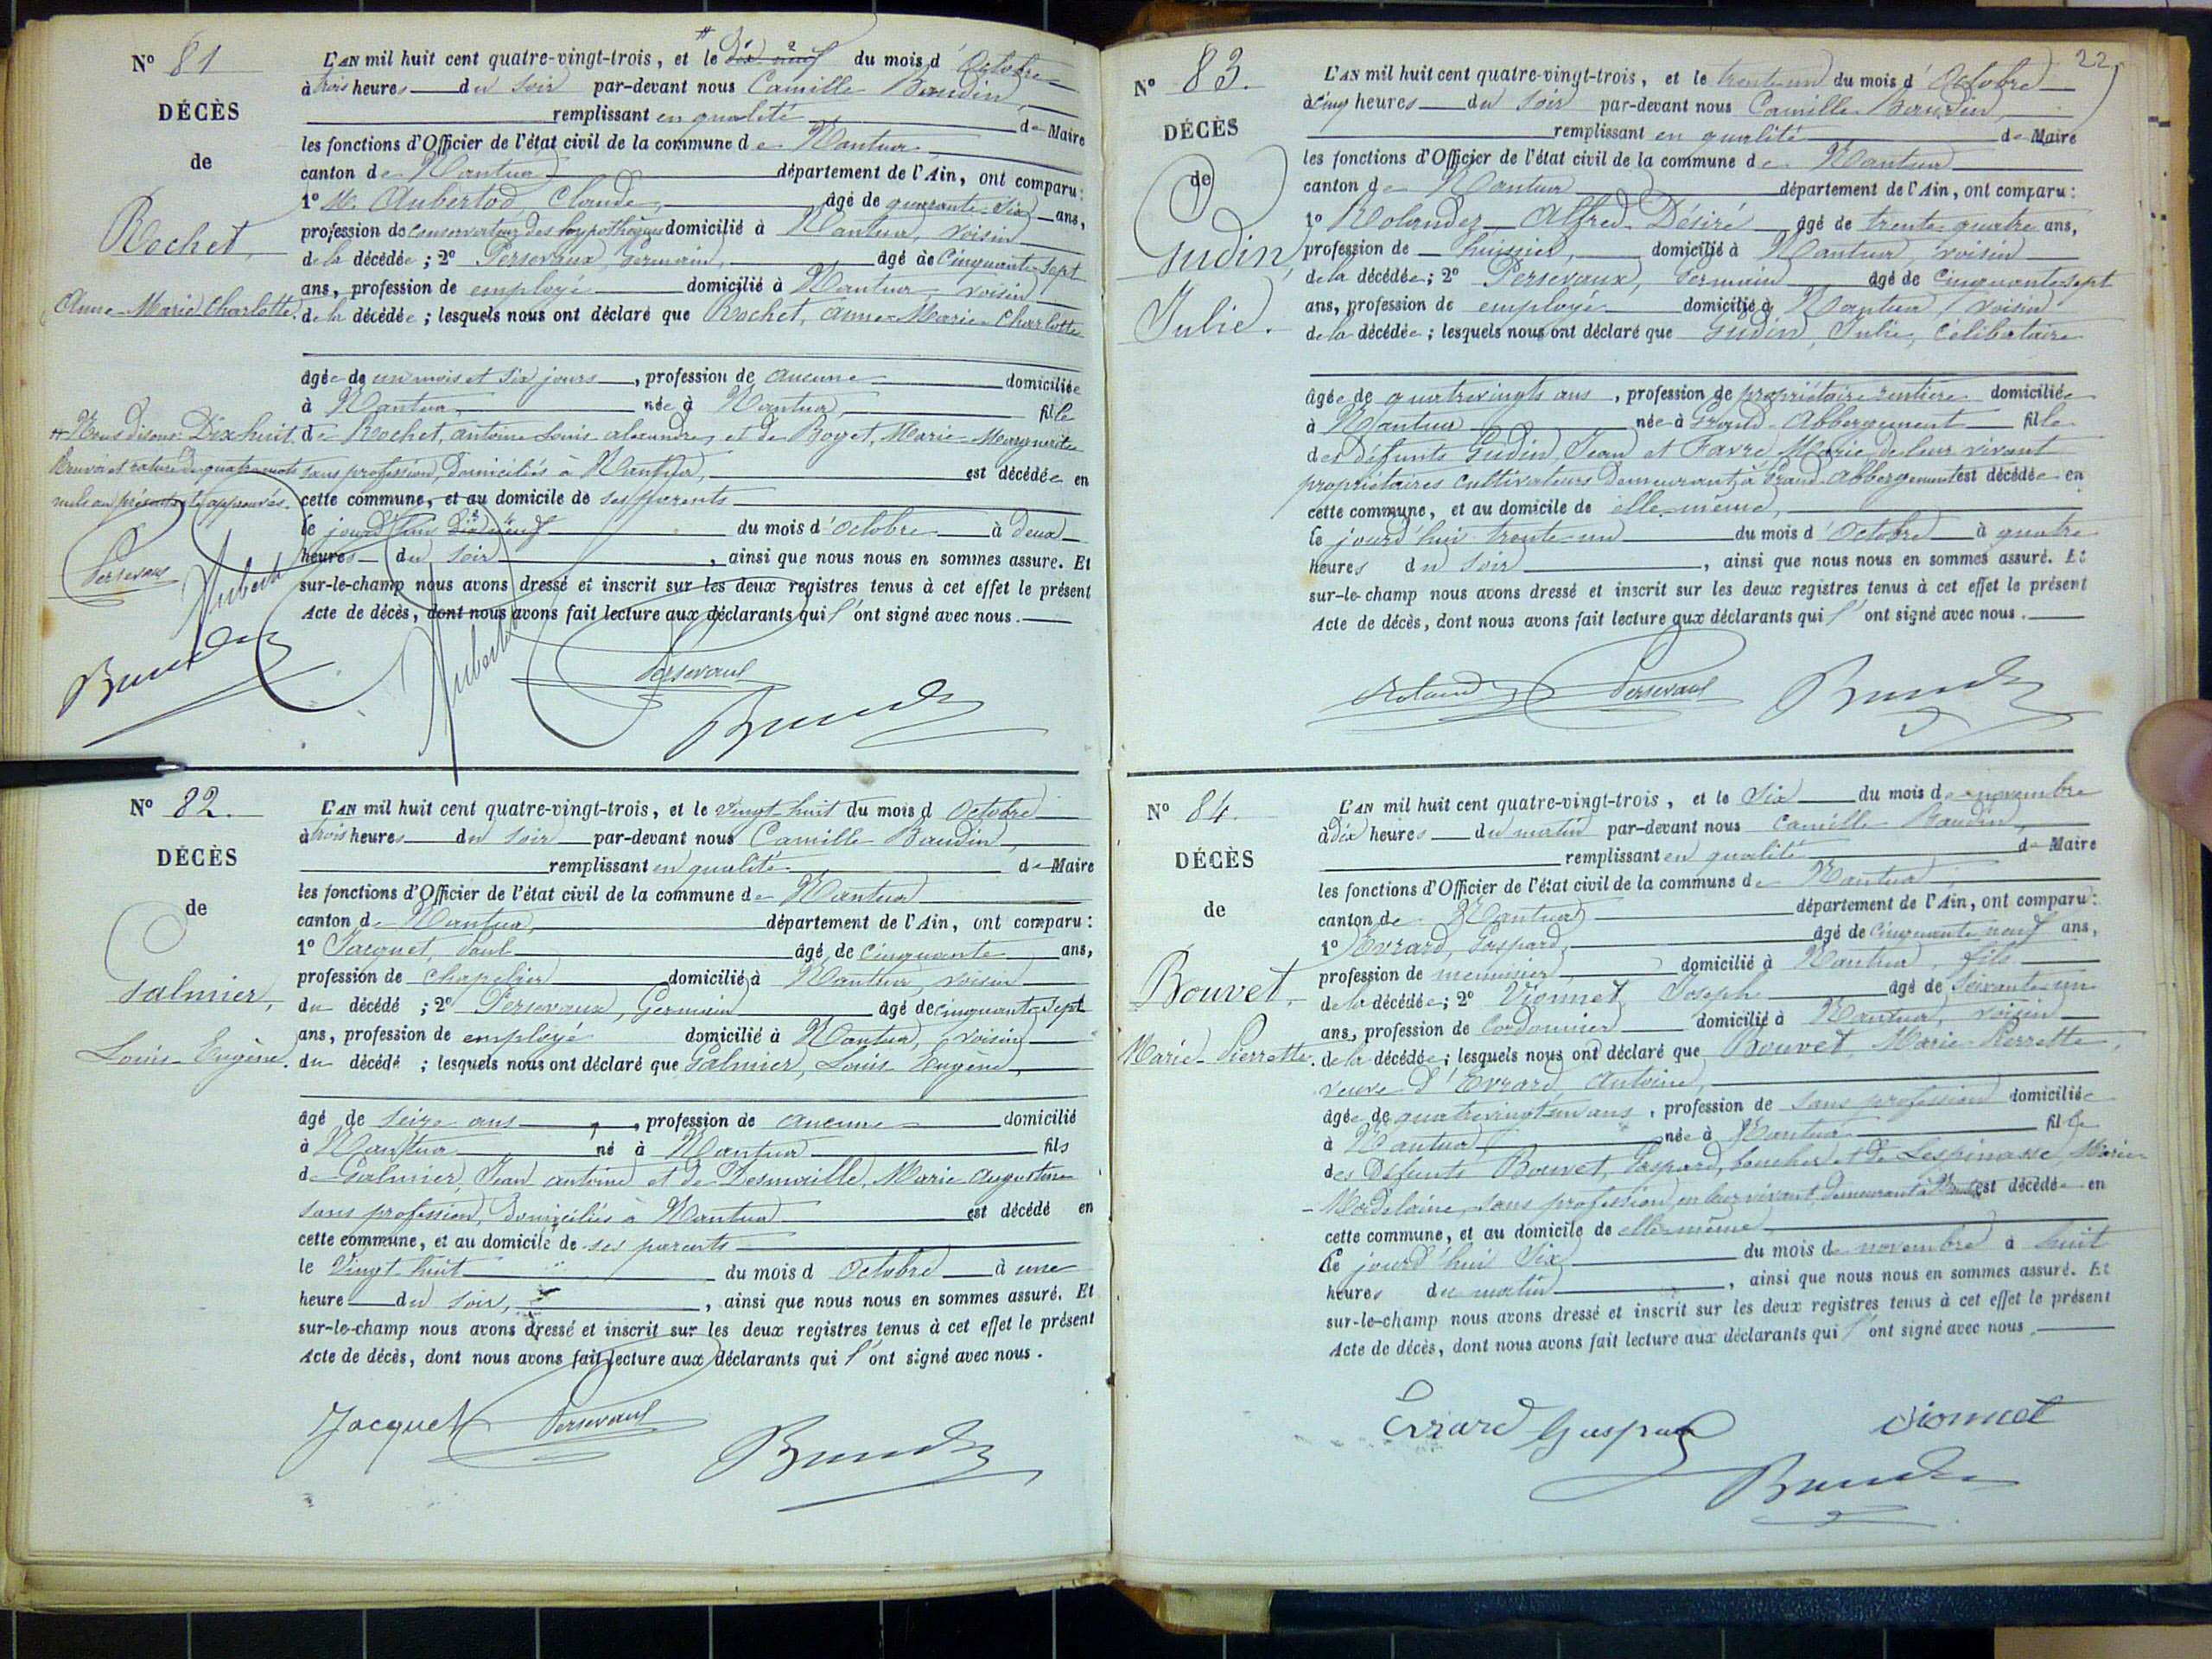 N° 81
DÉCÈS
de
Rochet,
Anne-Marie Charlotte.
L'AN mil huit cent quatre-vingt-trois, et le dix neuf du mois d'Octobre
à trois heures du soir par-devant nous Camille Baudin,
remplissant en qualité de Maire
les fonctions d'Officier de l'état civil de la commune de Nantua
canton de Nantua département de l'Ain, ont comparu:
1° M. Aubertod Claude, âgé de quarante-six ans,
profession de conservateur des hypothèques domicilié à Nantua, voisin
de la décédée; 2° Persevaux, Germain, âgé de Cinquante-Sept
ans, profession de employé domicilié à Nantua, voisin
de la décédée; lesquels nous ont déclaré que Rochet, Anne-Marie-Charlotte
âgée de un mois et six jours, profession de aucune domiciliée
à Nantua, née à Nantua, fille
de Rochet, antoine Louis alexandre, et de Boget, Marie-Marguerite
sans profession, domiciliés à Nantua, est décédée en
cette commune, et au domicile de ses parents
le jourd'hui Dix neuf du mois d'octobre à deux
heures du soir, ainsi que nous nous en sommes assuré. Et
sur-le-champ nous avons dressé et inscrit sur les deux registres tenus à cet effet le présent
Acte de décès, dont nous avons fait lecture aux déclarants qui l'ont signé avec nous.
Nous disons: Dix huit.
Renvoi et rature de quatre mots
nuls au présent acte approuvés.
Persevaux
Aubertod
Baudin
Aubertod
Persevaux
Baudin
N° 82.
DÉCÈS
de
Galmier,
Louis-Eugène.
L'AN mil huit cent quatre-vingt-trois, et le vingt-huit du mois d Octobre
à trois heures du soir par-devant nous Camille Baudin,
remplissant en qualité de Maire
les fonctions d'Officier de l'état civil de la commune de Nantua
canton de Nantua, département de l'Ain, ont comparu:
1° Jacquet, Paul âgé de Cinquante ans,
profession de Chapelier domicilié à Nantua, voisin
du décédé; 2° Persevaux, Germain âgé de cinquante-Sept
ans, profession de employé domicilié à Nantua, voisin
du décédé; lesquels nous ont déclaré que Galmier, Louis Eugène,
âgé de seize ans, profession de aucune domicilié
à Nantua né à Nantua fils
de Galmier, Jean antoine et de Desmaille, Marie Augustine
sans profession, domiciliés à Nantua est décédé en
cette commune, et au domicile de ses parents
le Vingt-huit du mois d Octobre à une
heure du soir, ainsi que nous nous en sommes assuré. Et
sur-le-champ nous avons dressé et inscrit sur les deux registres tenus à cet effet le présent
Acte de décès, dont nous avons fait lecture aux déclarants qui l'ont signé avec nous.
Jacquet
Persevaux
Baudin
22
N° 83.
DÉCÈS
de
Gudin,
Julie.
L'AN mil huit cent quatre-vingt-trois, et le trente-un du mois d'Octobre
à cinq heures du soir par-devant nous Camille Baudin,
remplissant en qualité de Maire
les fonctions d'Officier de l'état civil de la commune de Nantua
canton de Nantua département de l'Ain, ont comparu:
1° Rolandez Alfred Désiré âgé de trente-quatre ans,
profession de huissier, domicilié à Nantua, voisin
de la décédée; 2° Persevaux, Germain âgé de Cinquante-sept
ans, profession de employé domicilié à Nantua, voisin
de la décédée; lesquels nous ont déclaré que Gudin, Julie, célibataire
âgée de quatrevingts ans, profession de propriétaire rentière domiciliée
à Nantua née à Grand-Abbergement fille
des défunts Gudin, Jean et Favre Marie, de leur vivant
propriétaires cultivateurs demeurant à Grand-Abbergement est décédée en
cette commune, et au domicile de elle-même,
le jourd'hui trente-un du mois d'Octobre à quatre
heures du soir, ainsi que nous nous en sommes assuré. Et
sur-le-champ nous avons dressé et inscrit sur les deux registres tenus à cet effet le présent
Acte de décès, dont nous avons fait lecture aux déclarants qui l'ont signé avec nous.
Rolandez
Persevaux
Baudin
N° 84.
DÉCÈS
de
Bouvet,
Marie-Pierrette.
L'AN mil huit cent quatre-vingt-trois, et le six du mois de novembre
à dix heures du matin par-devant nous Camille Baudin,
remplissant en qualité de Maire
les fonctions d'Officier de l'état civil de la commune de Nantua,
canton de Nantua département de l'Ain, ont comparu:
1° Evrard, Gaspard, âgé de Cinquante neuf ans,
profession de menuisier, domicilié à Nantua, fils
de la décédée; 2° Vionnet, Joseph âgé de Soixante-un
ans, profession de Cordonnier domicilié à Nantua, voisin
de la décédée; lesquels nous ont déclaré que Bouvet, Marie-Pierrette,
veuve d'Evrard, Antoine,
âgée de quatrevingt-un ans, profession de sans profession domiciliée
à Nantua, née à Nantua fille
des Défunts Bouvet, Gaspard, boucher et de Lespinasse, Marie
-Madelaine, sans profession, en leur vivant demeurant à Nantua est décédée en
cette commune, et au domicile de elle-même
le jourd'hui Six du mois de novembre à huit
heures du matin, ainsi que nous nous en sommes assuré. Et
sur-le-champ nous avons dressé et inscrit sur les deux registres tenus à cet effet le présent
Acte de décès, dont nous avons fait lecture aux déclarants qui l'ont signé avec nous.
Evrard Gaspard
Vionnet
Baudin